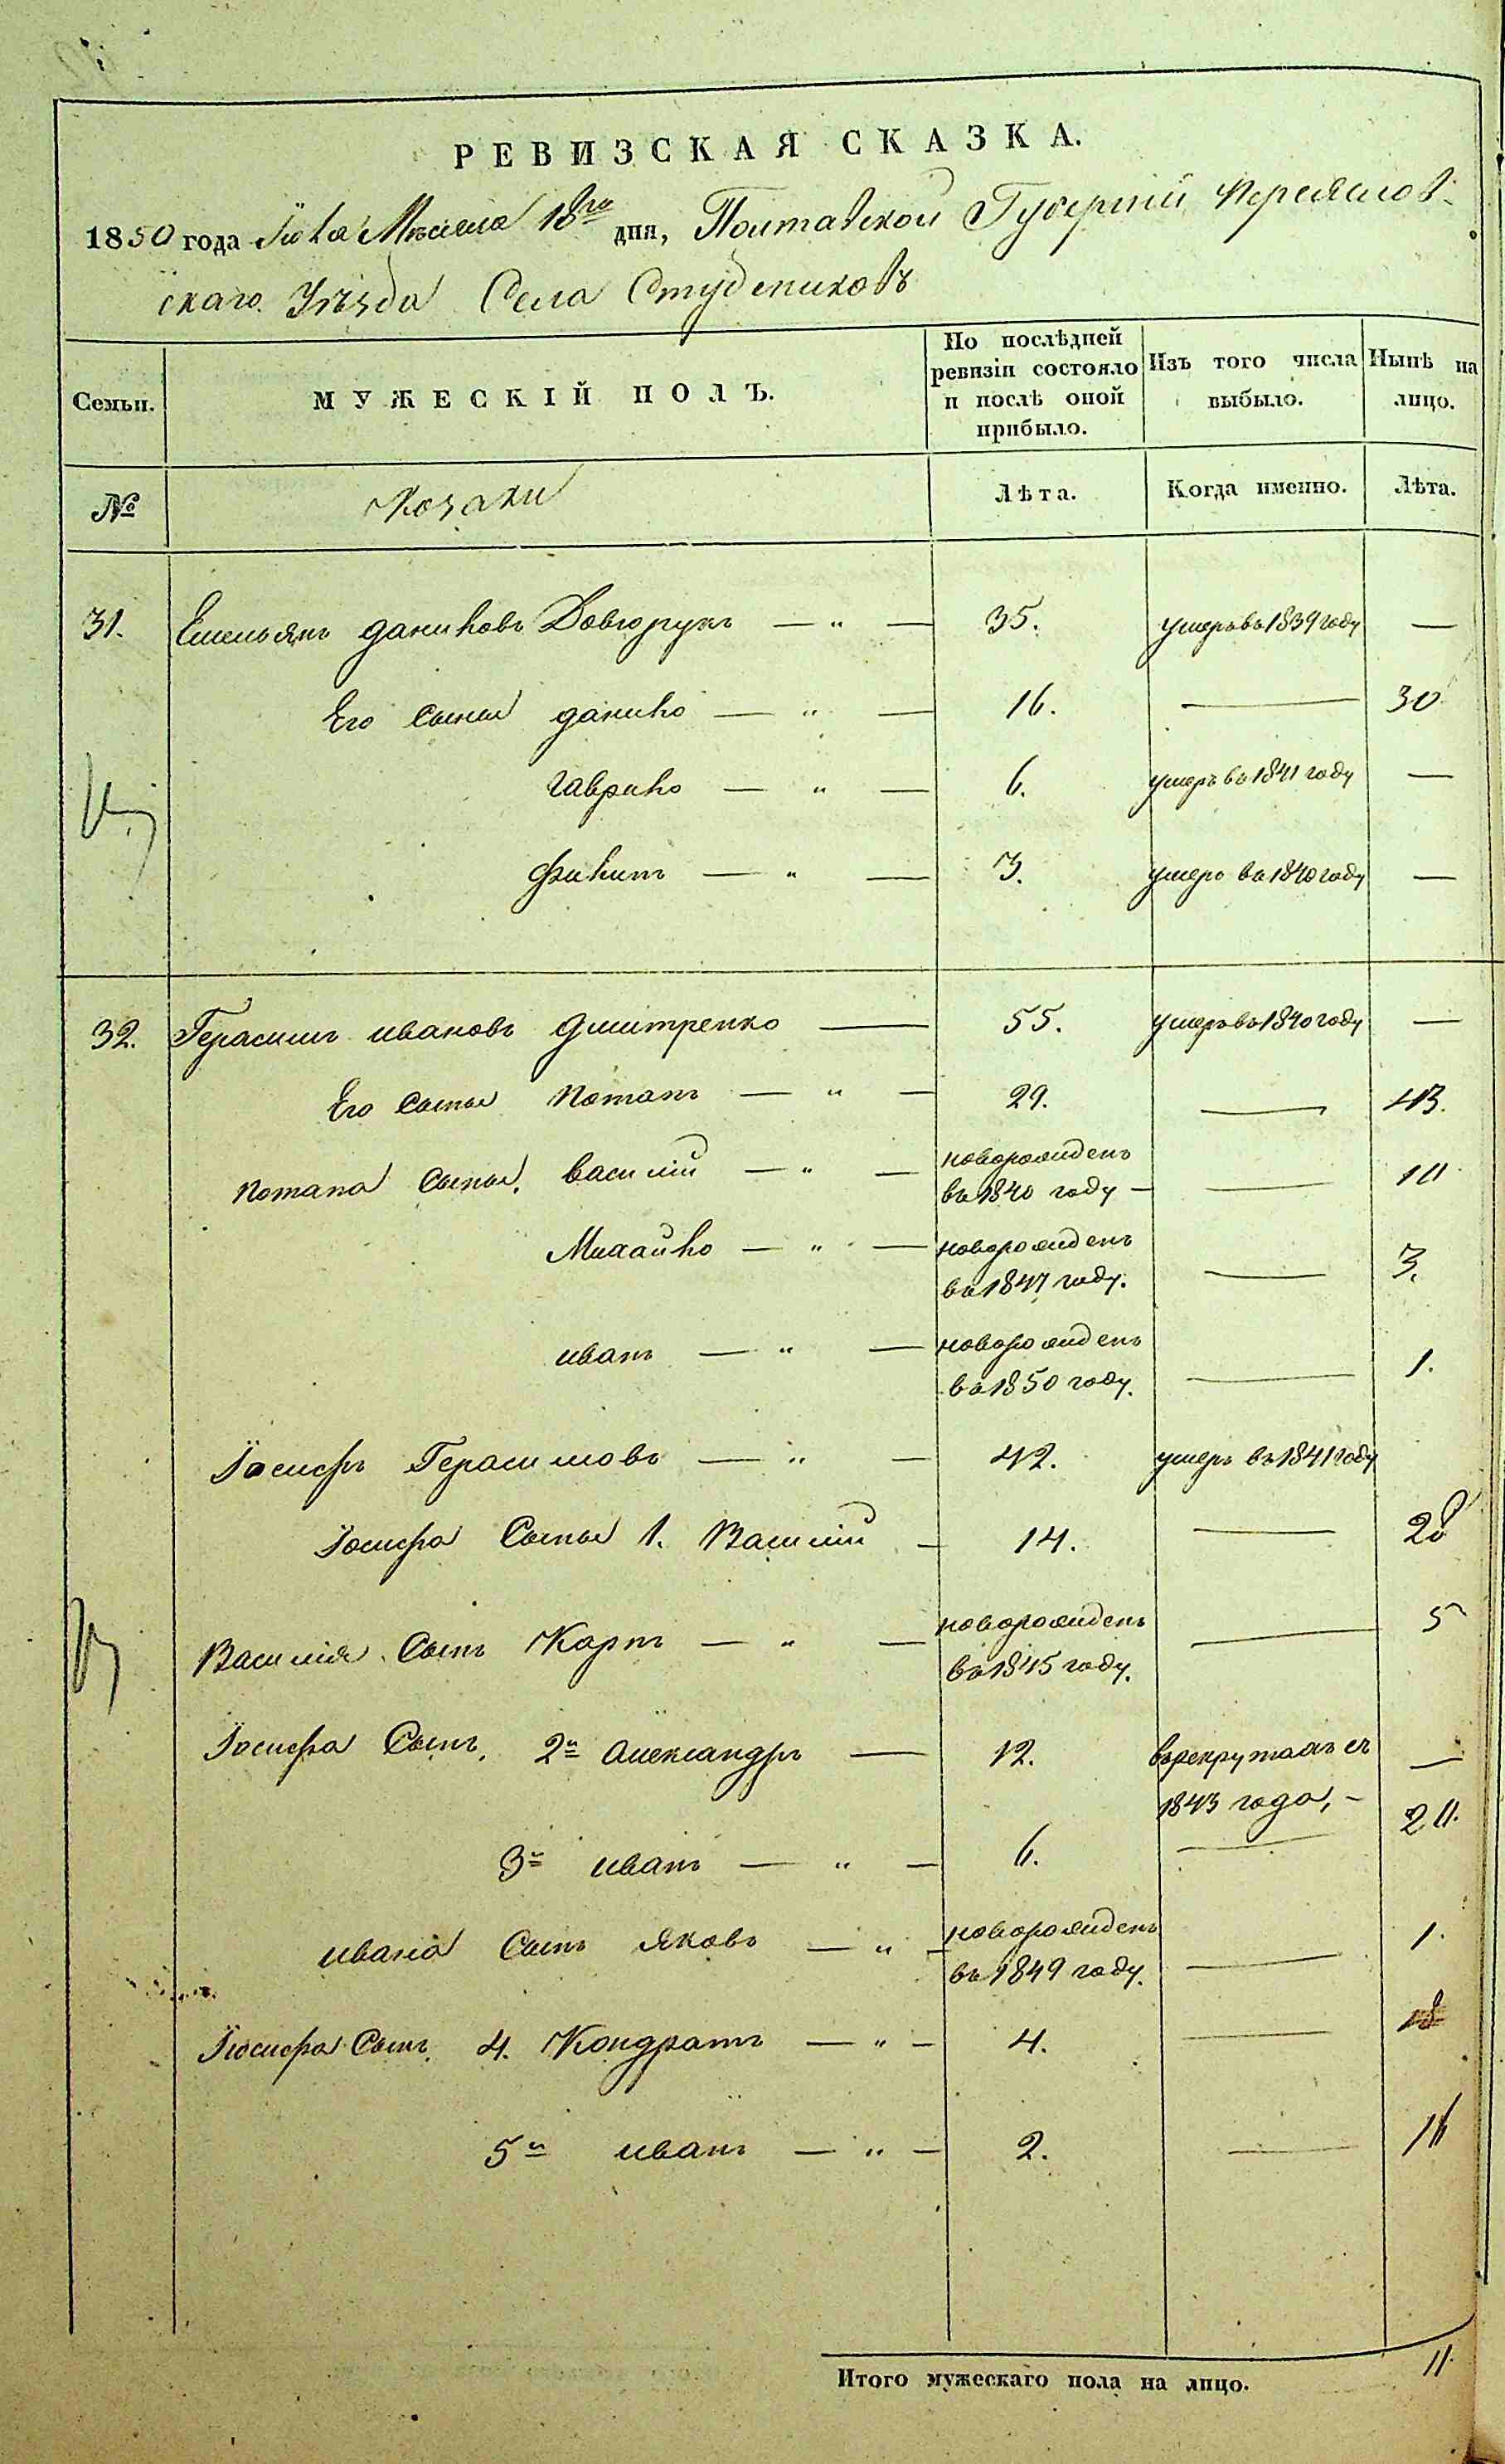 РЕВИЗСКАЯ СКАЗКА.
1850 года Іюля Мѣсяца 18го дня, Полтавской Губерніи Переяслов-
скаго Уѣзда Села Студениковъ
Семьи.
МУЖЕСКІЙ ПОЛЪ.
По послѣдней ревизіи состояло и послѣ оной прибыло.
Изъ того числа выбыло.
Нынѣ на лицо.
№ Козаки Лѣта. Когда именно. Лѣта.
31. Емельянъ даниловъ Довгорукъ — „ — 35. умеръ въ 1839 году —
Его сынья данило — „ — 16. — 30
гаврило — „ — 6. умеръ въ 1841 году —
филипъ — „ — 3. умеръ въ 1840 году —
32. Герасимъ ивановъ дмитренко — 55. умеръ въ 1840 году —
Его сынья потапъ — „ — 29. — 43.
потапа сынья, василій — „ — новорожденъ въ 1840 году — — 10
Михайло — „ — новорожденъ въ 1847 году. — 3.
иванъ — „ — новорожденъ въ 1850 году. — 1.
Іосифъ Герасимовъ — „ — 42. умеръ въ 1841 году
Іосифа Сынья 1. Василій — 14. — 28
Василія Сынъ Карпъ — „ — новорожденъ въ 1845 году. — 5
Іосифа Сынъ, 2й александръ — 12. въ рекрутахъ съ 1843 года, — —
3й иванъ — „ — 6. — 20.
ивана Сынъ яковъ — „ — новорожденъ въ 1849 году. — 1.
Іосифа Сынъ 4. Кондратъ — „ — 4. — 18
5й иванъ — „ — 2. — 16
Итого мужескаго пола на лицо. 11.